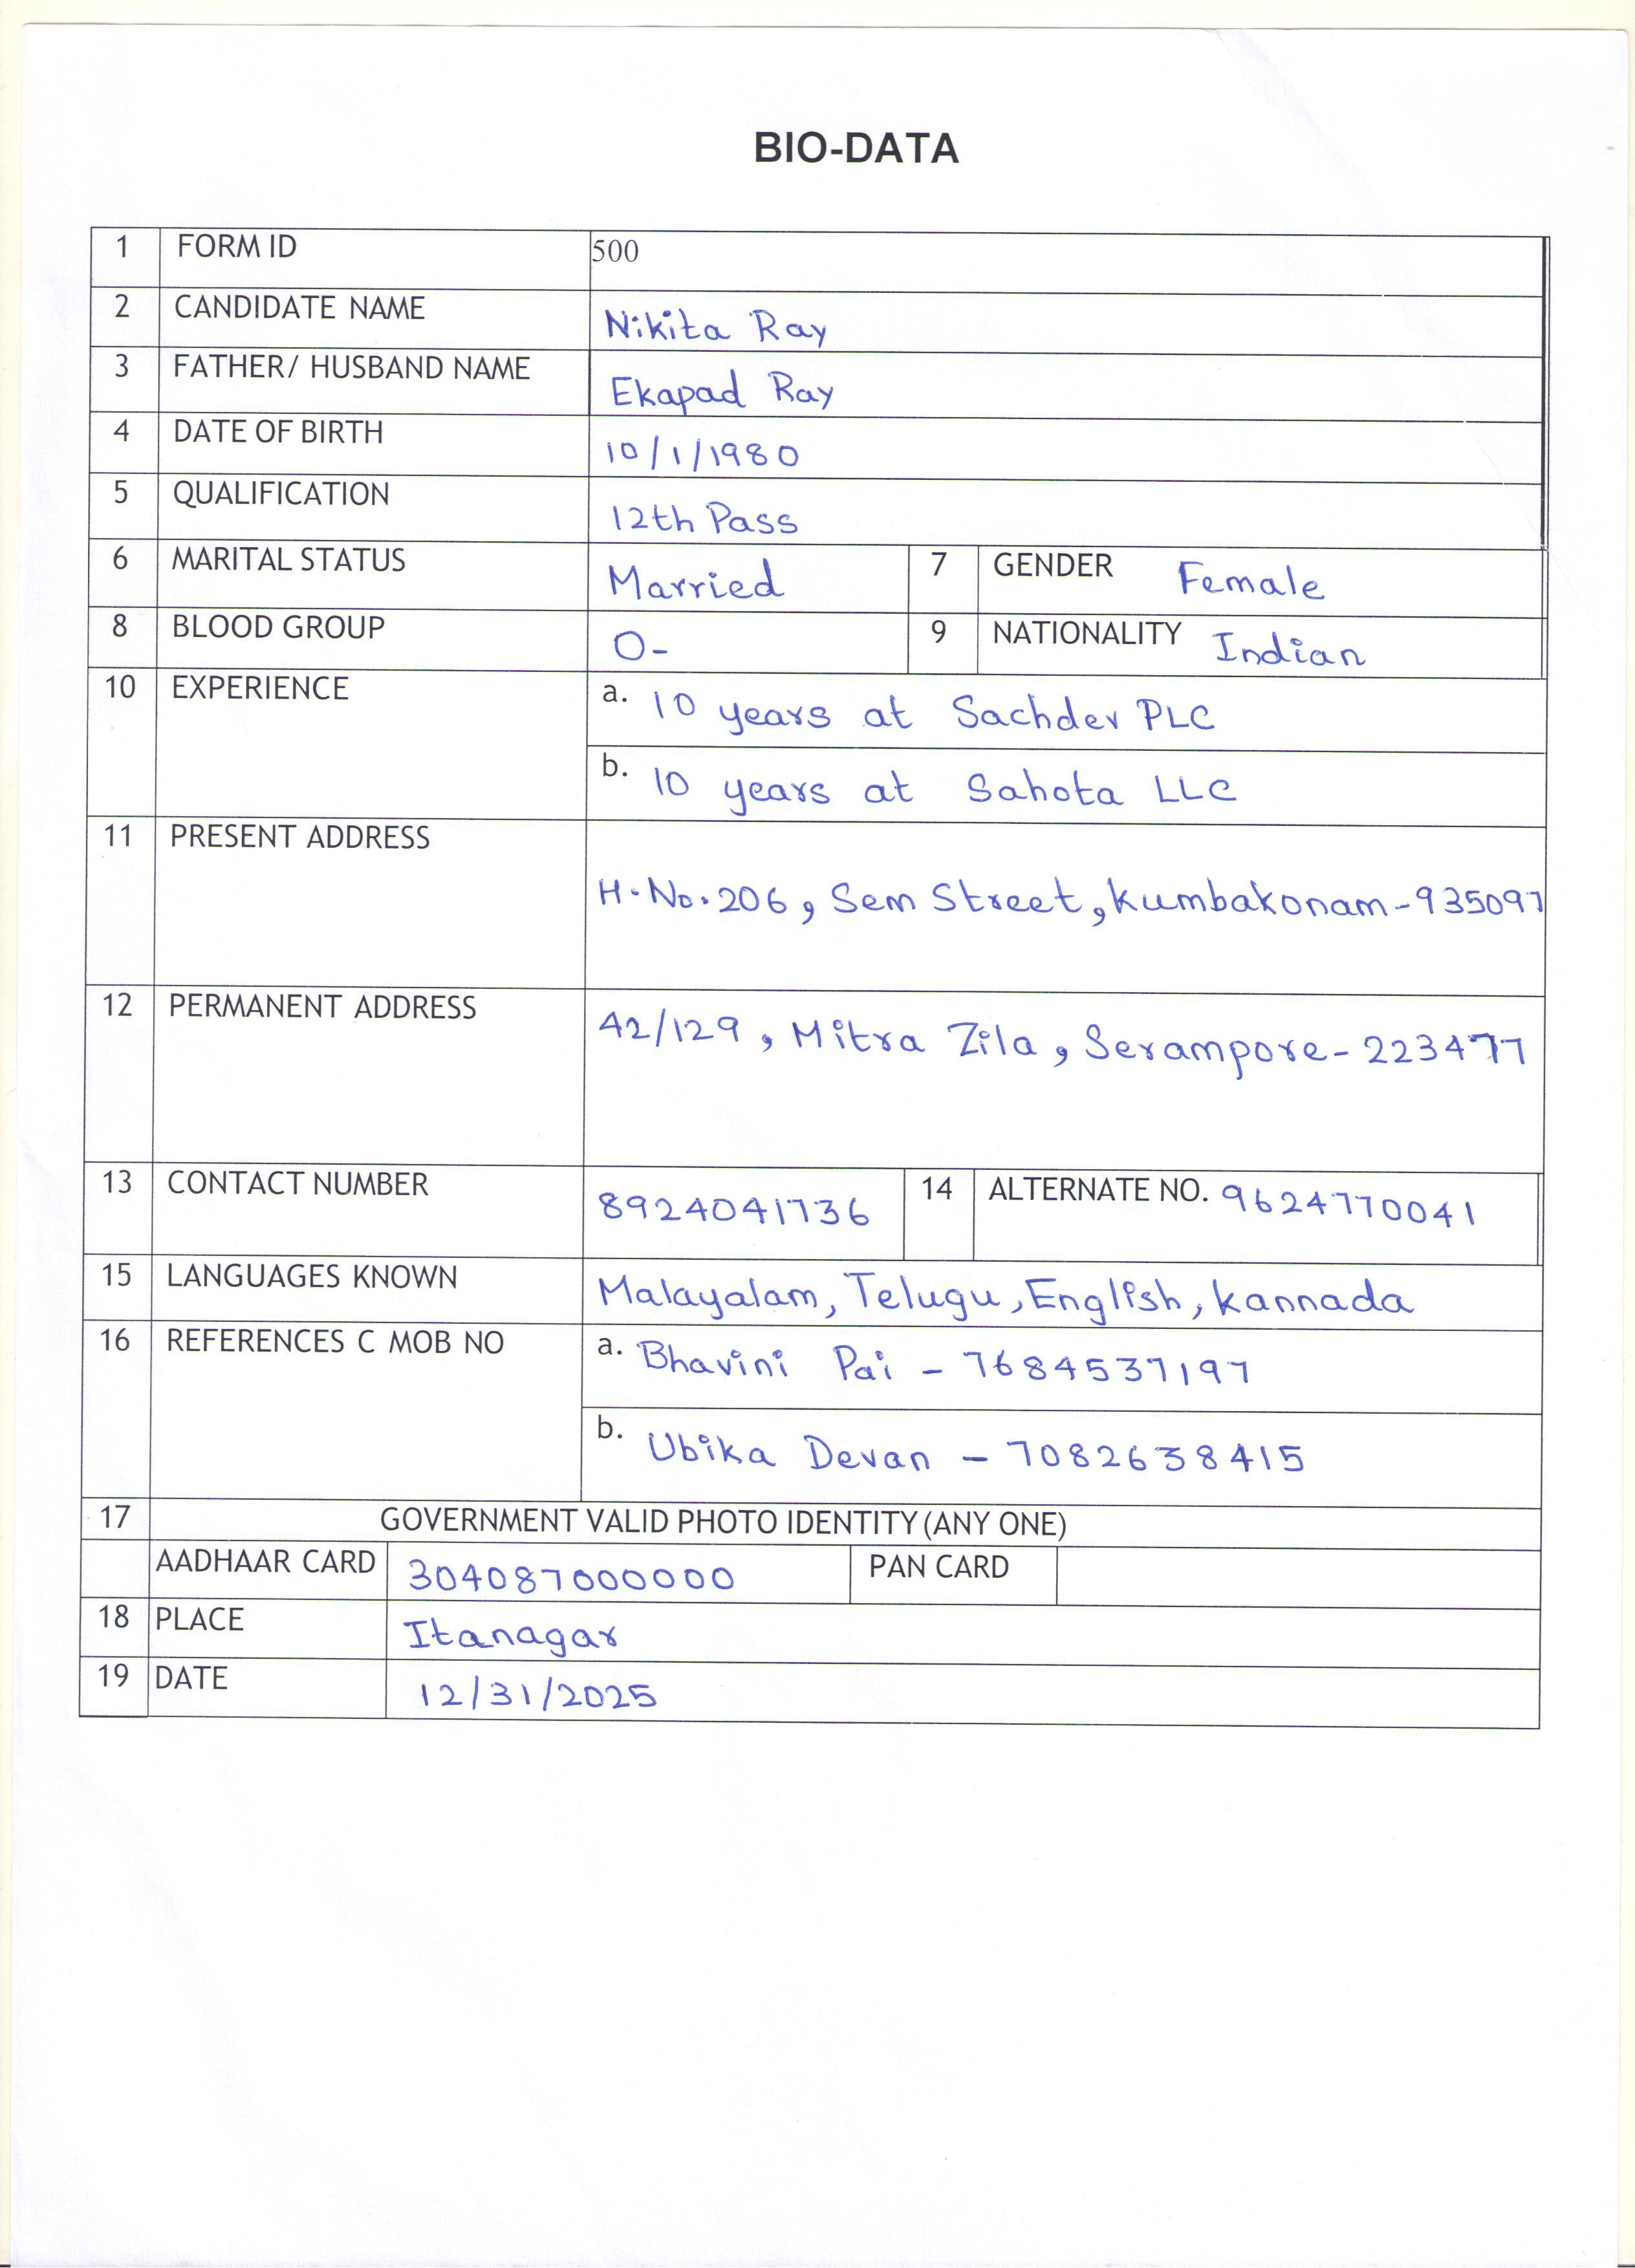 BIO-DATA
1 FORM ID 500
2 CANDIDATE NAME Nikita Ray
3 FATHER/ HUSBAND NAME Ekapad Ray
4 DATE OF BIRTH 10/1/1980
5 QUALIFICATION 12th Pass
6 MARITAL STATUS Married 7 GENDER Female
8 BLOOD GROUP O- 9 NATIONALITY Indian
10 EXPERIENCE a. 10 years at Sachdev PLC
b. 10 years at Sahota LLC
11 PRESENT ADDRESS
H.No.206, Sem Street, Kumbakonam-935097
12 PERMANENT ADDRESS 42/129, Mitra Zila, Serampore-223477
13 CONTACT NUMBER 8924041736 14 ALTERNATE NO. 9624770041
15 LANGUAGES KNOWN Malayalam, Telugu, English, Kannada
16 REFERENCES C MOB NO a. Bhavini Pai - 7684537197
b. Ubika Devan - 7082638415
17 GOVERNMENT VALID PHOTO IDENTITY (ANY ONE)
AADHAAR CARD 304087000000 PAN CARD
18 PLACE Itanagar
19 DATE 12/31/2025